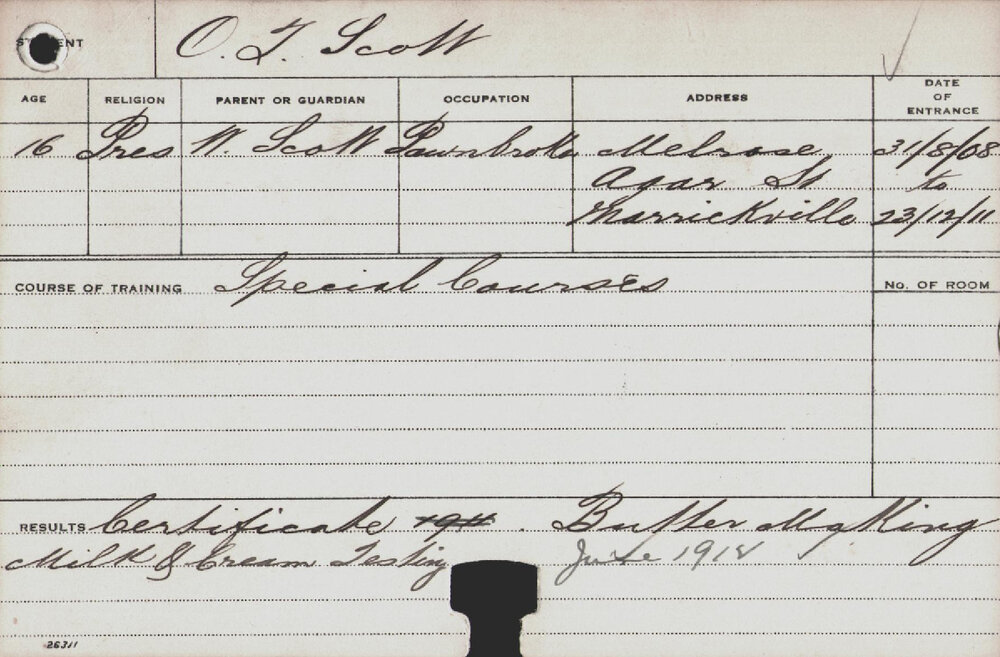 STUDENT O. T. Scott
AGE RELIGION PARENT OR GUARDIAN OCCUPATION ADDRESS DATE OF ENTRANCE
16 Pres W. Scott Pawnbroker Melrose 31/8/08
Agar St to
Marrickville 23/12/11
COURSE OF TRAINING Special Courses No. OF ROOM
RESULTS Certificate 1911. Butter Making
Milk & Cream Testing June 1912
26311